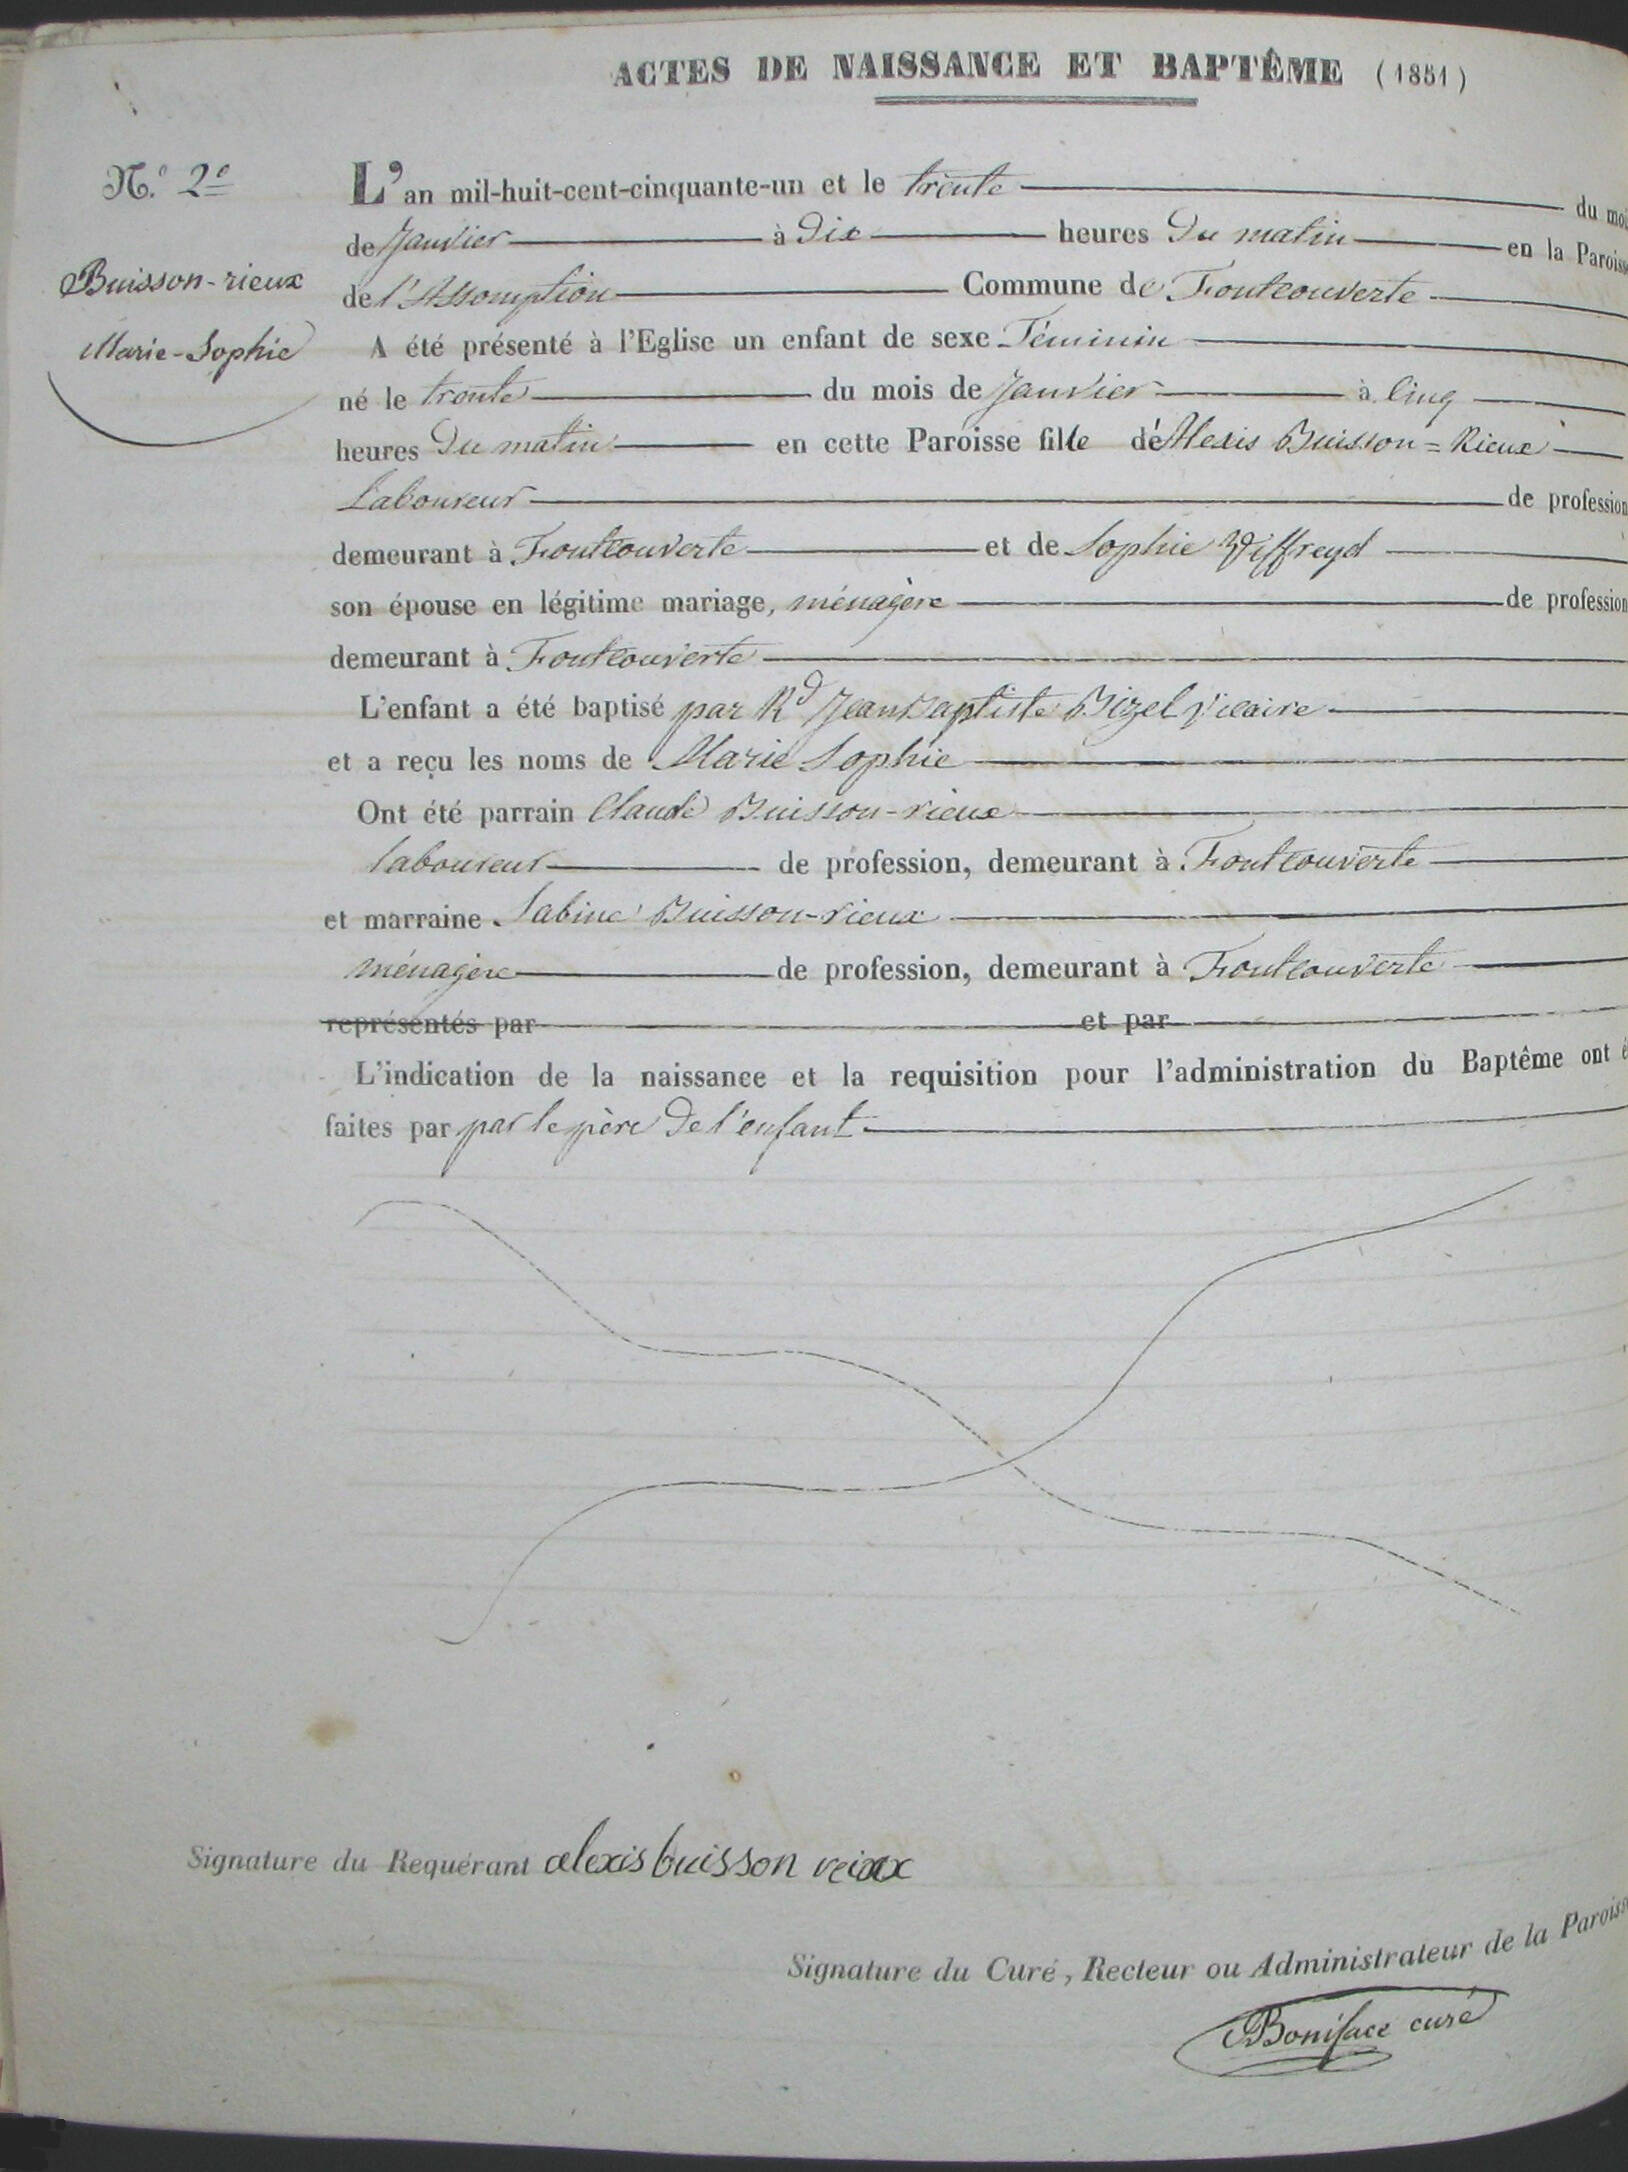 ACTES DE NAISSANCE ET BAPTÊME (1851)
N.º 2e
L'an mil-huit-cent-cinquante-un et le trente du moi
de Janvier à dix heures du matin en la Paroiss
Buisson-rieux
de l'Assomption Commune de Fontcouverte
Marie-Sophie
A été présenté à l'Eglise un enfant de sexe Féminin
né le trente du mois de Janvier à cinq
heures du matin en cette Paroisse fille de Alexis Buisson=Rieux
Laboureur de profession
demeurant à Fontcouverte et de Sophie Viffreyd
son épouse en légitime mariage, ménagère de profession
demeurant à Fontcouverte
L'enfant a été baptisé par Rd Jean Baptiste Bizel Vicaire
et a reçu les noms de Marie Sophie
Ont été parrain Claude Buisson-rieux
laboureur de profession, demeurant à Fontcouverte
et marraine Sabine Buisson-rieux
ménagère de profession, demeurant à Fontcouverte
représentés par et par
L'indication de la naissance et la requisition pour l'administration du Baptême ont é
faites par par le père de l'enfant
Signature du Requérant alexis buisson reiux
Signature du Curé, Recteur ou Administrateur de la Paroiss
Boniface curé